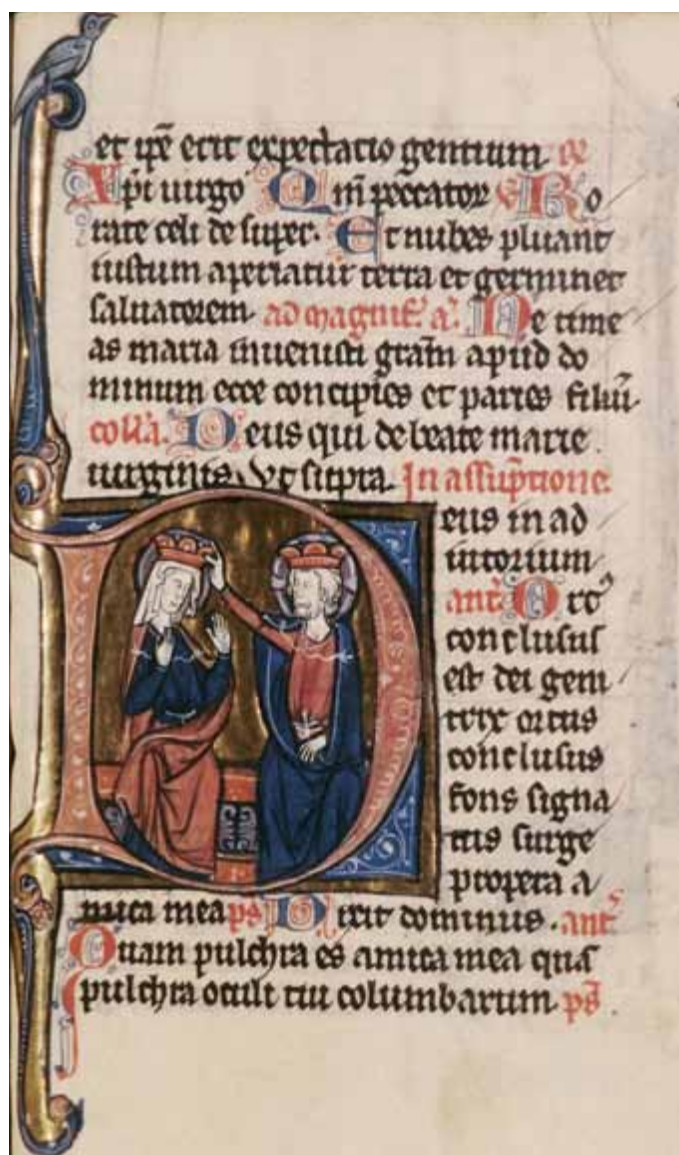 et ip̄e erit expectatio gentium
Xp̄i uirgo Qm̄ peccator Ro
rate celi de super. Et nubes pluant
iustum aperiatur terra et germinet
saluatorem ad magnif. a. Ne time
as maria inuenisti gr̄am apud do
minum ecce concipies et paries filiū
coll'a. Deus qui de beate marie
uirginis. Vt supra. In assūptione.
Deus in ad
iutorium
ant. Ort'
conclusus
est dei geni
trix ortus
conclusus
fons signa
tus surge
propera a
mica mea ps̄ Dixit dominus. ant.
Quam pulchra es amica mea quā
pulchra oculi tui columbarum ps̄